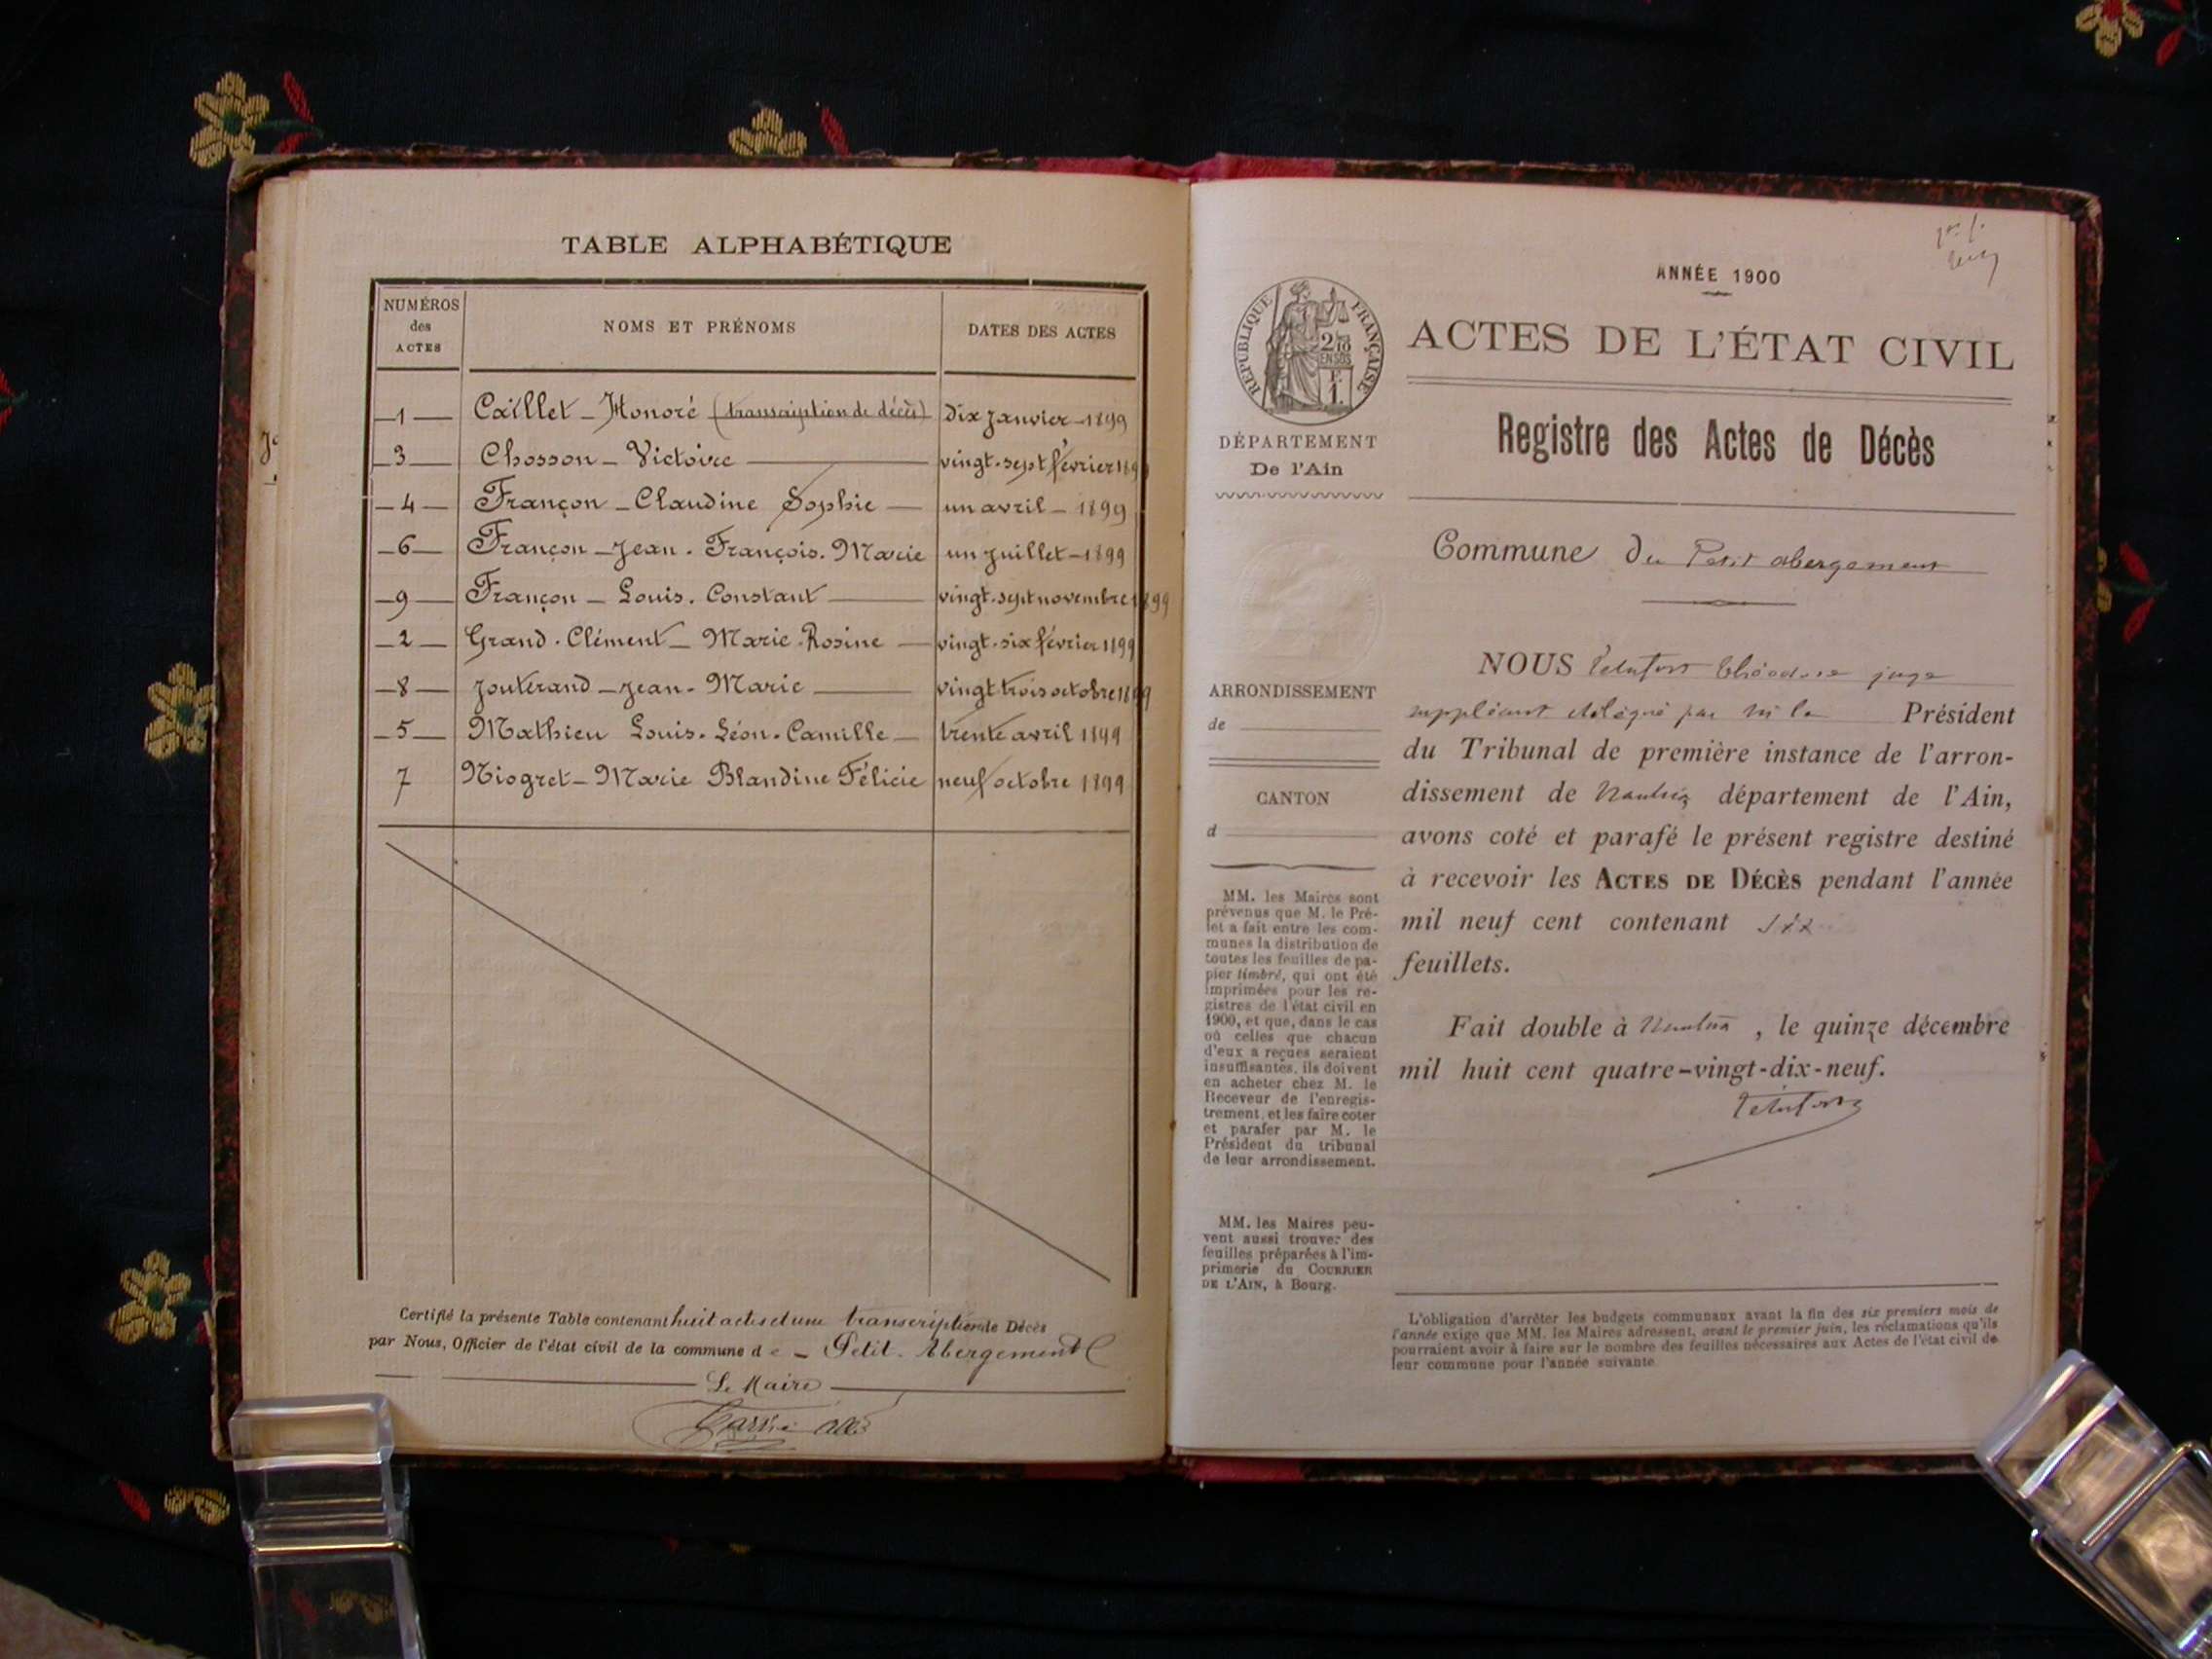 TABLE ALPHABÉTIQUE
NUMÉROS
des
ACTES
NOMS ET PRÉNOMS
DATES DES ACTES
1 Caillet - Honoré (transcription de décès) dix janvier - 1899
3 Chosson - Victoire vingt-sept février 189
4 Françon - Claudine Sophie un avril - 1899
6 Françon - Jean - François - Marie un juillet - 1899
9 Françon - Louis - Constant vingt-sept novembre 1899
2 Grand-Clément - Marie-Rosine vingt-six février 1899
8 Jouterand - Jean - Marie vingt trois octobre 1899
5 Mathieu Louis-Léon-Camille trente avril 1899
7 Niogret - Marie Blandine Félicie neuf octobre 1899
Certifié la présente Table contenant huit actes et une transcription de Décès
par Nous, Officier de l'état civil de la commune de - Petit-Abergement
Le Maire
ANNÉE 1900
RÉPUBLIQUE FRANÇAISE
ACTES DE L'ÉTAT CIVIL
Registre des Actes de Décès
DÉPARTEMENT
De l'Ain
Commune du Petit abergement
ARRONDISSEMENT
de
CANTON
d
NOUS Théodore juge
suppléant délégué par Mr le Président
du Tribunal de première instance de l'arron-
dissement de Nantua département de l'Ain,
avons coté et parafé le présent registre destiné
à recevoir les ACTES DE DÉCÈS pendant l'année
mil neuf cent contenant six
feuillets.
Fait double à Nantua, le quinze décembre
mil huit cent quatre-vingt-dix-neuf.
MM. les Maires sont
prévenus que M. le Pré-
fet a fait entre les com-
munes la distribution de
toutes les feuilles de pa-
pier timbré, qui ont été
imprimées pour les re-
gistres de l'état civil en
1900, et que, dans le cas
où celles que chacun
d'eux a reçues seraient
insuffisantes, ils doivent
en acheter chez M. le
Receveur de l'enregis-
trement, et les faire coter
et parafer par M. le
Président du tribunal
de leur arrondissement.
MM. les Maires peu-
vent aussi trouver des
feuilles préparées à l'im-
primerie du COURRIER
DE L'AIN, à Bourg.
L'obligation d'arrêter les budgets communaux avant la fin des six premiers mois de
l'année exige que MM. les Maires adressent, avant le premier juin, les réclamations qu'ils
pourraient avoir à faire sur le nombre des feuilles nécessaires aux Actes de l'état civil de
leur commune pour l'année suivante